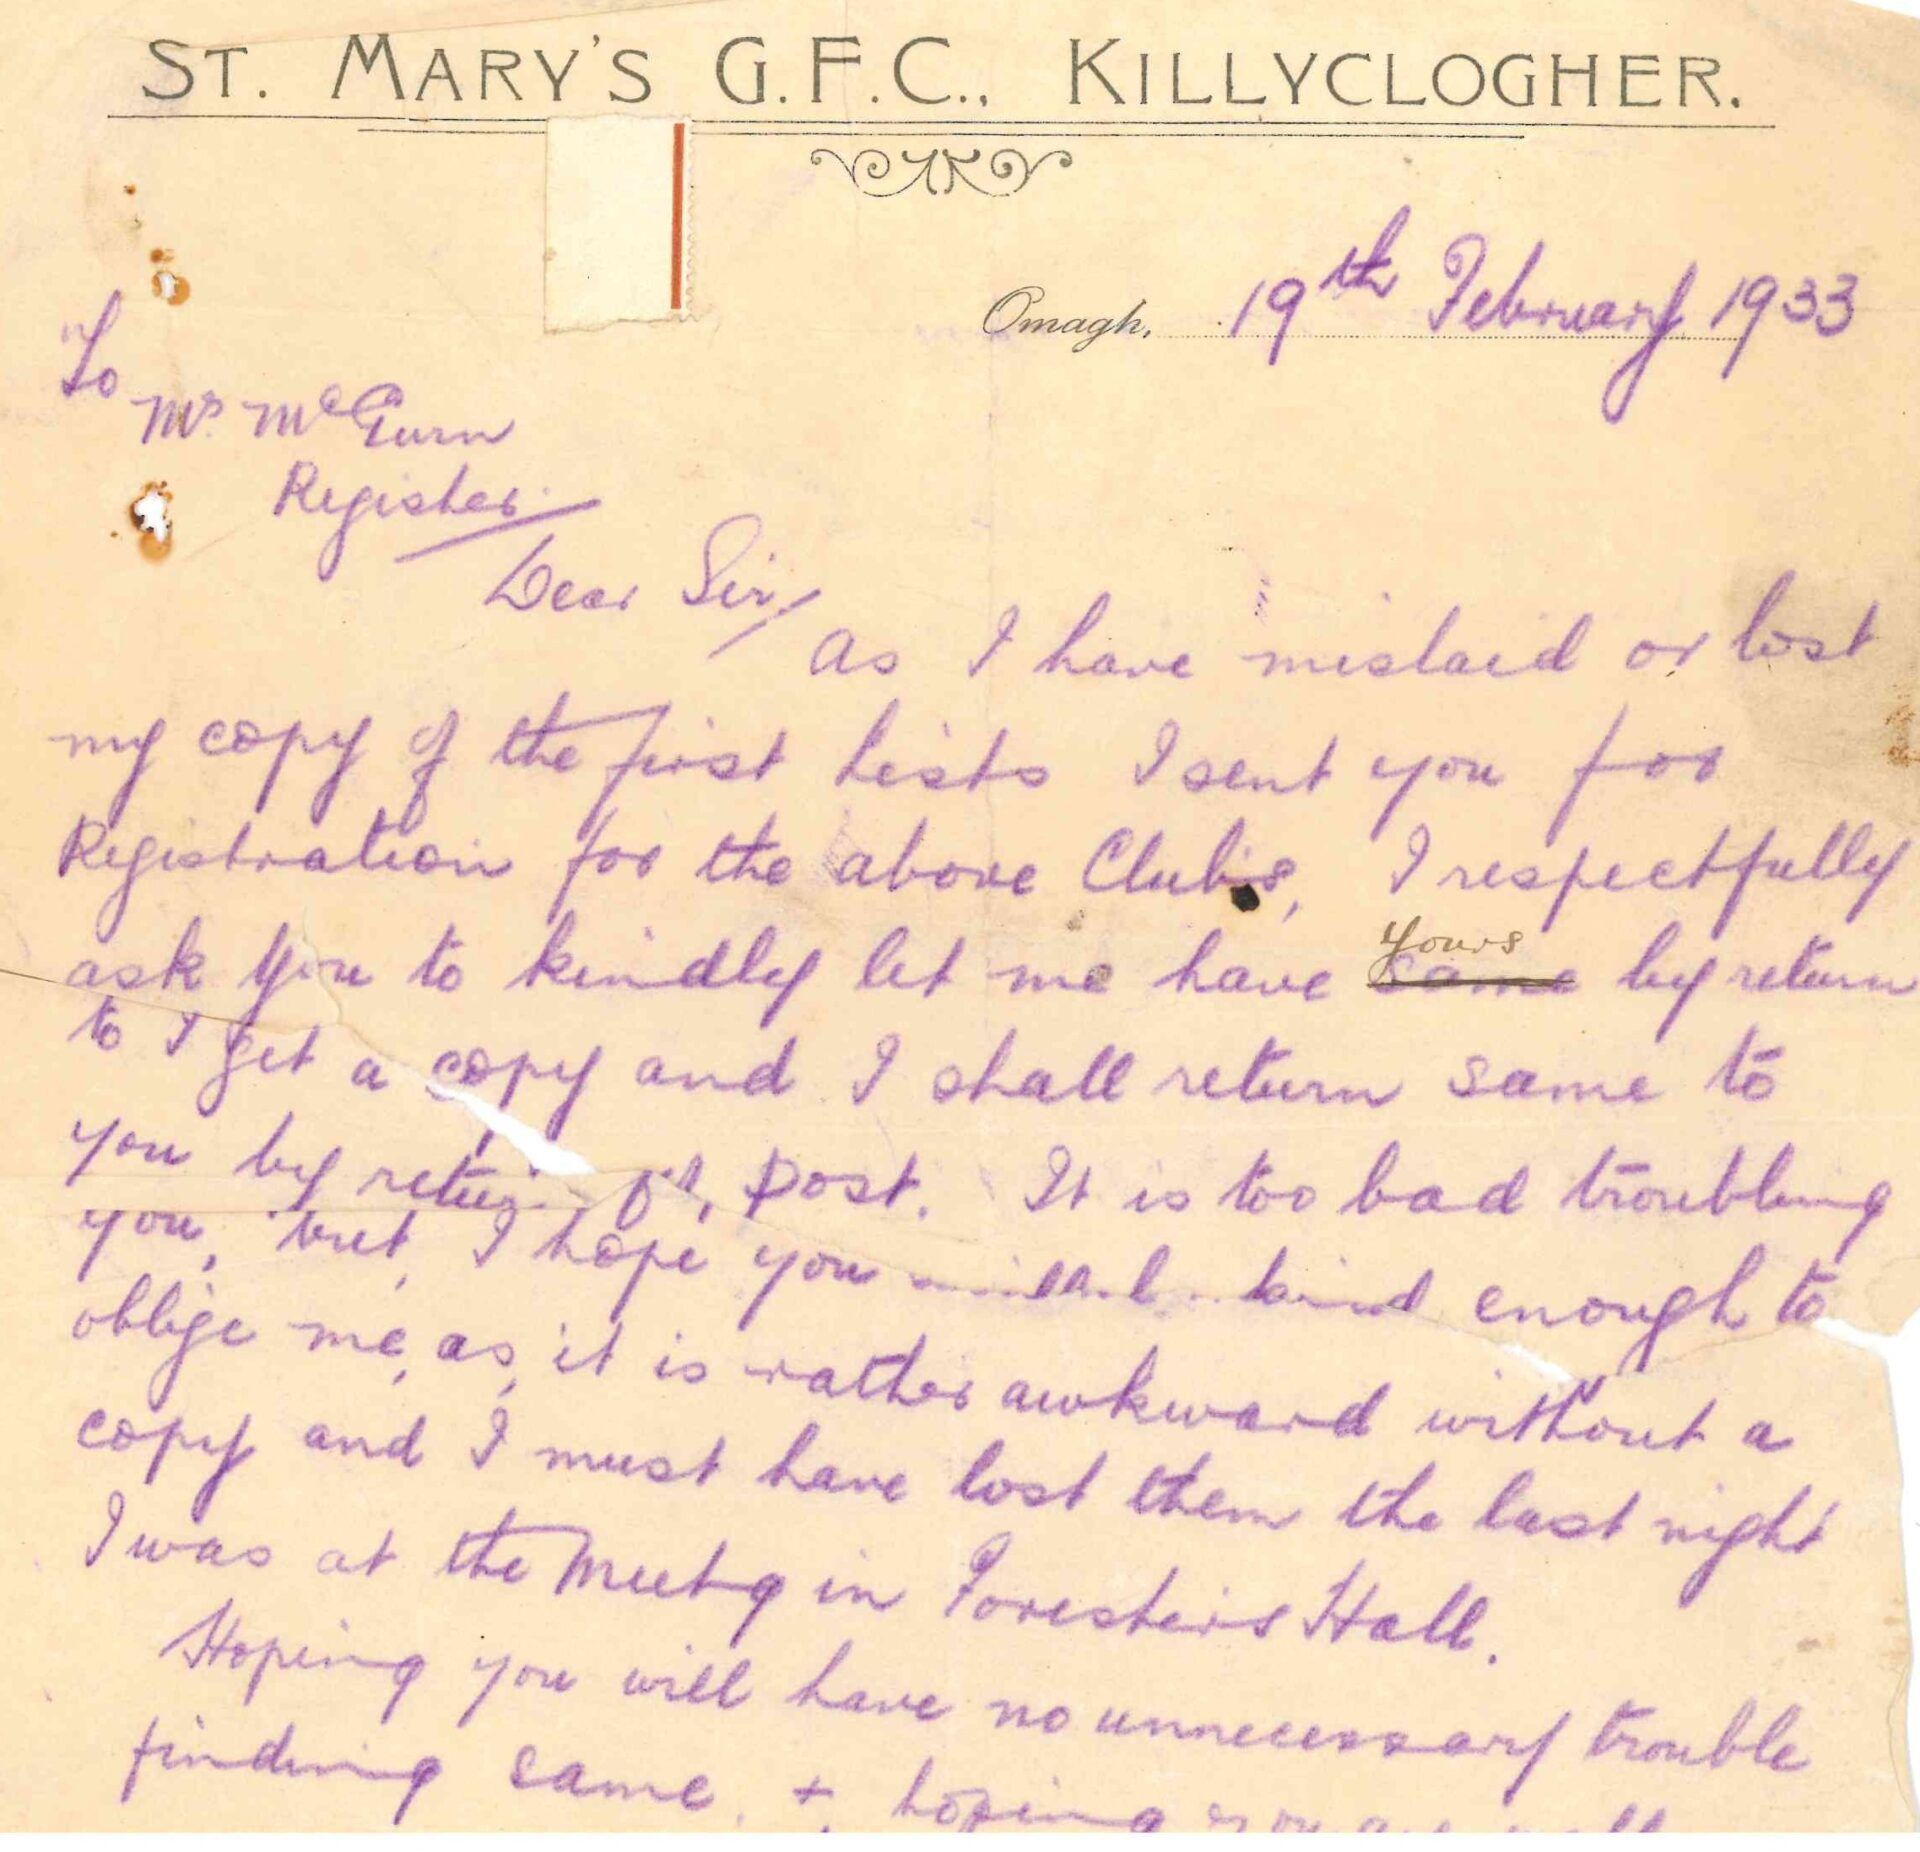 ST. MARY'S G.F.C., KILLYCLOGHER.
Omagh, 19th February 1933
To
Mr. McGurn
Register
Dear Sir,
As I have mislaid or lost
my copy of the first lists I sent you for
Registration for the above Clubs, I respectfully
yours
ask you to kindly let me have same by return
to I get a copy and I shall return same to
you by return of post. It is too bad troubling
you, but I hope you will be kind enough to
oblige me, as it is rather awkward without a
copy and I must have lost them the last night
I was at the Meetg in Foresters Hall.
Hoping you will have no unnecessary trouble
finding same + hoping you are well